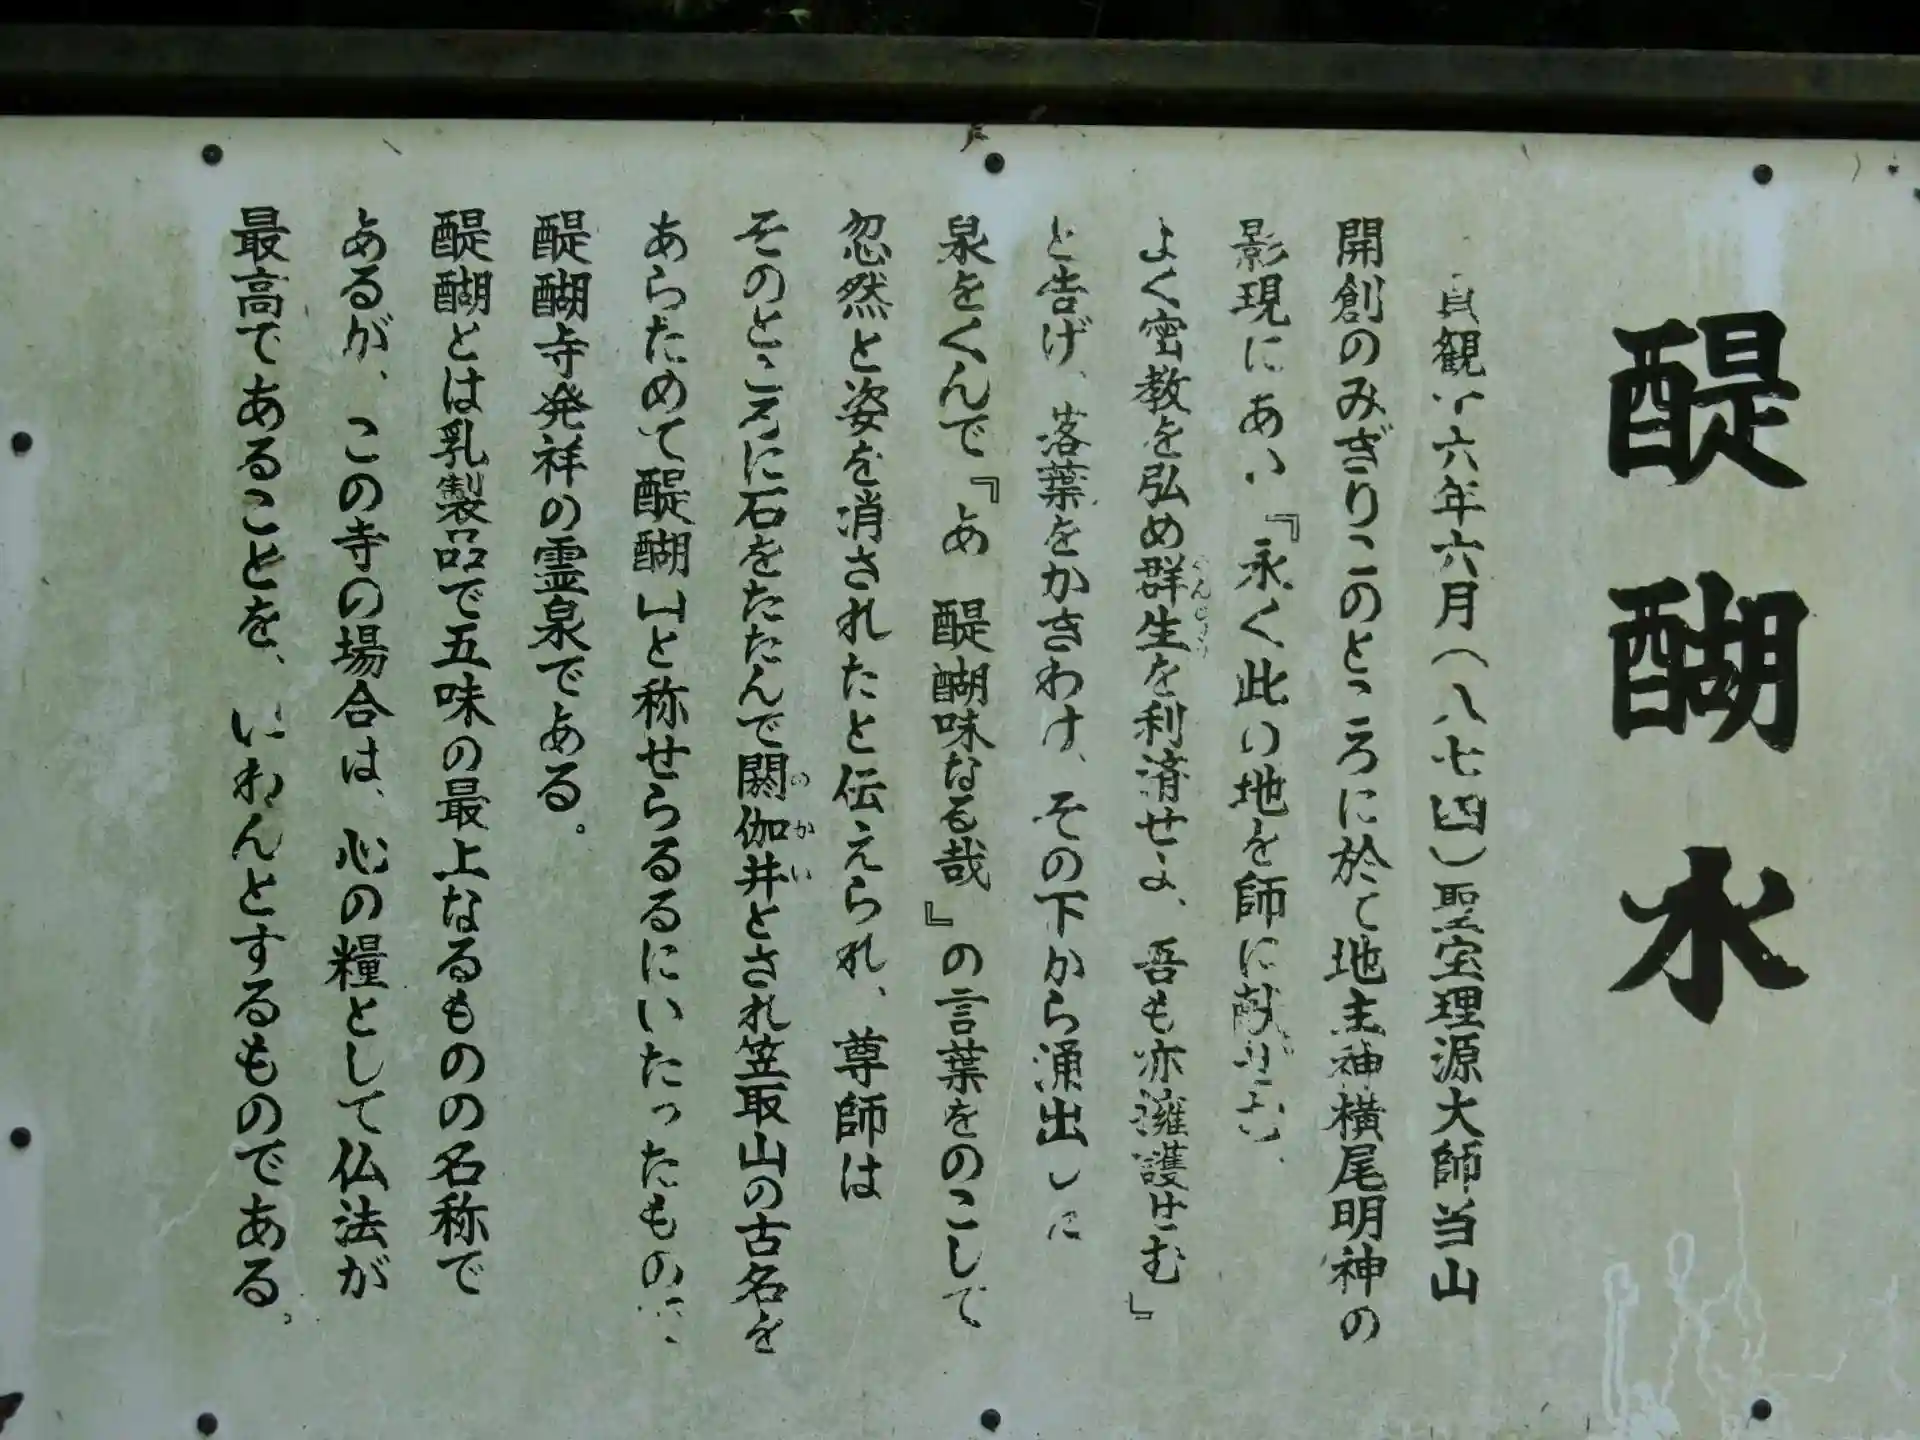 醍醐水
貞観十六年六月（八七四）聖宝理源大師当山
開創のみぎりこのところに於て地主神横尾明神の
影現にあい『永く此い地を師に献ぜむ、
よく密教を弘め群生を利済せよ、吾も亦擁護せむ』
と告げ、落葉をかきわけ、その下から涌出した
泉をくんで『あゝ醍醐味なる哉』の言葉をのこして
忽然と姿を消されたと伝えられ、尊師は
そのところに石をたたんで閼伽井とされ笠取山の古名を
のかい
あらためて醍醐山と称せらるるにいたったもので、
醍醐寺発祥の霊泉である。
醍醐とは乳製品で五味の最上なるものの名称で
あるが、この寺の場合は、心の糧として仏法が
最高であることを、いわんとするものである。